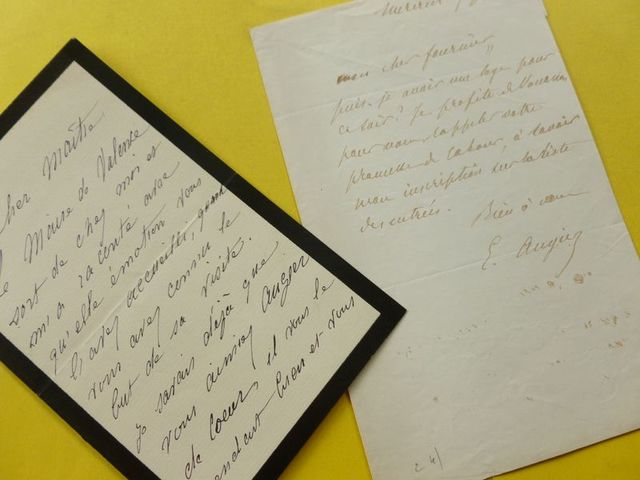 cher Maître
Le Maire de Valence
sort de chez moi et
m'a raconté avec
qu'elle émotion vous
l'avez accueilli, quand
vous avez connu le
but de sa visite.
Je savais déjà que
vous aimiez Augier
de coeur, il vous le
rendait bien et vous
mon cher fournier
puis-je avoir une loge pour
ce soir? Je profite de l'occasion
pour vous rappeler votre
promesse de , à savoir
mon inscription sur la liste
des entrées.
Bien à vous
E. Augier
24/